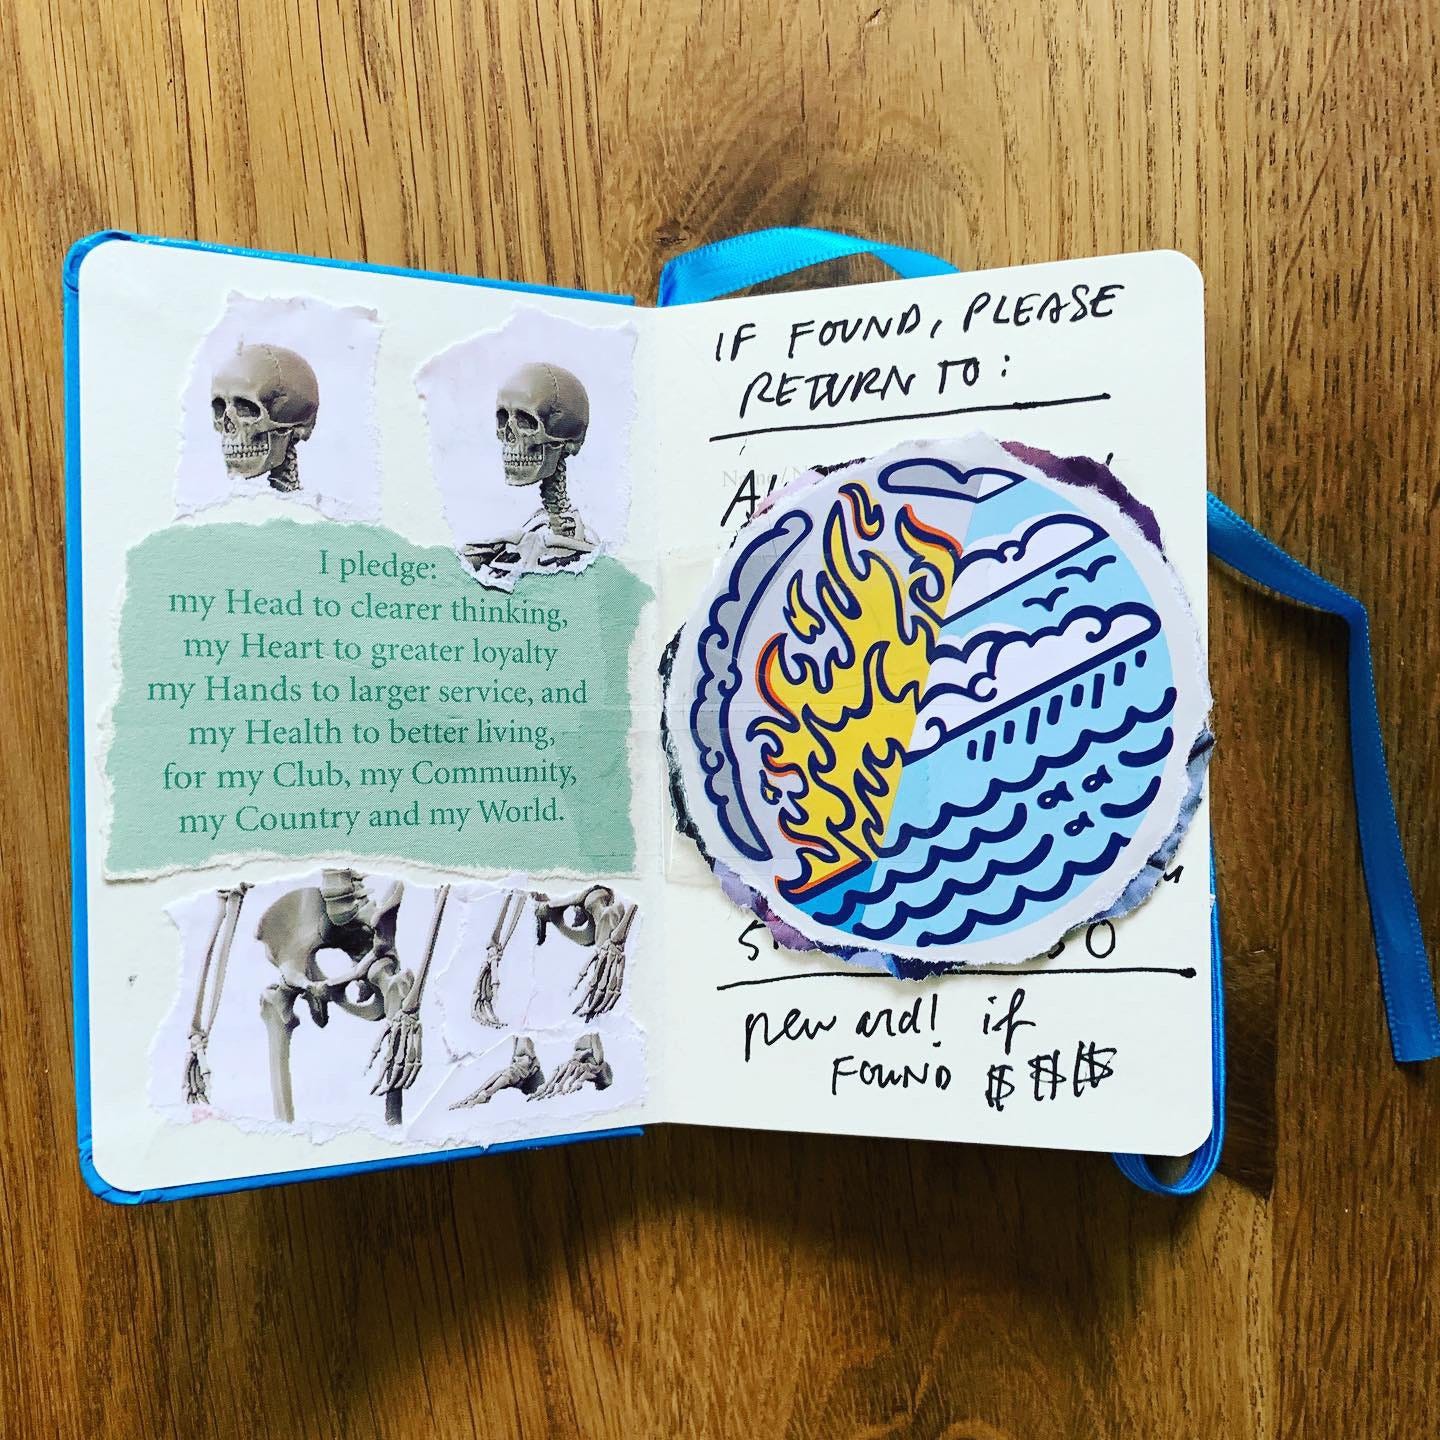 I pledge:
my Head to clearer thinking,
my Heart to greater loyalty
my Hands to larger service, and
my Health to better living,
for my Club, my Community,
my Country and my World.
IF FOUND, PLEASE
RETURN TO:
reward! if
FOUND $ $ $